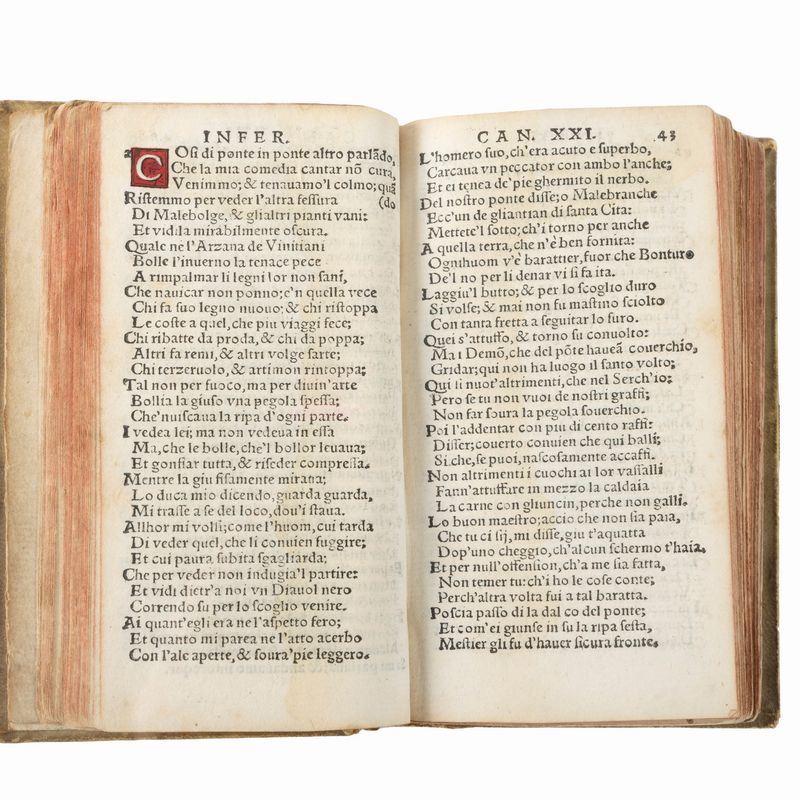 INFER.
COſi di ponte in ponte altro parlãdo,
Che la mia comedia cantar nõ cura,
Venimmo; & tenauamo'l colmo; quã
Riſtemmo per veder l'altra feſſura (do
Di Malebolge, & glialtri pianti vani:
Et vidila mirabilmente oſcura.
Quale ne l'Arzana de Vinitiani
Bolle l'inuerno la tenace pece
A rimpalmar li legni lor non ſani,
Che nauicar non ponno; e'n quella vece
Chi fa ſuo legno nuouo; & chi riſtoppa
Le coſte a quel, che piu viaggi fece;
Chi ribatte da proda, & chi da poppa;
Altri fa remi, & altri volge ſarte;
Chi terzeruolo, & artimon rintoppa:
Tal non per fuoco, ma per diuin'arte
Bollia la giuſo vna pegola ſpeſſa;
Che'nuiſcaua la ripa d'ogni parte.
I vedea lei; ma non vedeua in eſſa
Ma, che le bolle, che'l bollor leuaua;
Et gonfiar tutta, & riſeder compreſſa.
Mentre la giu fiſamente miraua;
Lo duca mio dicendo, guarda guarda,
Mi traſſe a ſe del loco, dou'i ſtaua.
Allhor mi volſi; come l'huom, cui tarda
Di veder quel, che li conuien fuggire;
Et cui paura ſubita ſgagliarda;
Che per veder non indugia'l partire:
Et vidi dietr'a noi vn Diauol nero
Correndo ſu per lo ſcoglio venire.
Ai quant'egli era ne l'aſpetto fero;
Et quanto mi parea ne l'atto acerbo
Con l'ale aperte, & ſoura'pie leggero.
CAN. XXI. 43
L'homero ſuo, ch'era acuto e ſuperbo,
Carcaua vn peccator con ambo l'anche;
Et ei tenea de'pie ghermito il nerbo.
Del noſtro ponte diſſe; o Malebranche
Ecc'un de gliantian di ſanta Cita:
Mettete'l ſotto; ch'i torno per anche
A quella terra, che n'è ben fornita:
Ognihuom v'è barattier, fuor che Bonturo
De'l no per li denar vi ſi fa ita.
Laggiu'l butto; & per lo ſcoglio duro
Si volſe; & mai non fu maſtino ſciolto
Con tanta fretta a ſeguitar lo furo.
Quei s'attuffo, & torno ſu conuolto:
Ma i Demõ, che del põte haueã couerchio,
Gridar; qui non ha luogo il ſanto volto;
Qui ſi nuot'altrimenti, che nel Serch'io:
Pero ſe tu non vuoi de noſtri graffi;
Non far ſoura la pegola ſouerchio.
Poi l'addentar con piu di cento raffi:
Diſſer; couerto conuien che qui balli;
Si, che, ſe puoi, naſcoſamente accaffi.
Non altrimenti i cuochi ai lor vaſſalli
Fann'attuffare in mezzo la caldaia
La carne con gliuncin, perche non galli.
Lo buon maeſtro; accio che non ſia paia,
Che tu ci ſij, mi diſſe, giu t'aquatta
Dop'uno cheggio, ch'alcun ſchermo t'haia.
Et per null'offenſion, ch'a me ſia fatta,
Non temer tu: ch'i ho le coſe conte;
Perch'altra volta fui a tal baratta.
Poſcia paſſo di la dal co del ponte;
Et com'ei giunſe in ſu la ripa ſeſta,
Meſtier gli fu d'hauer ſicura fronte.